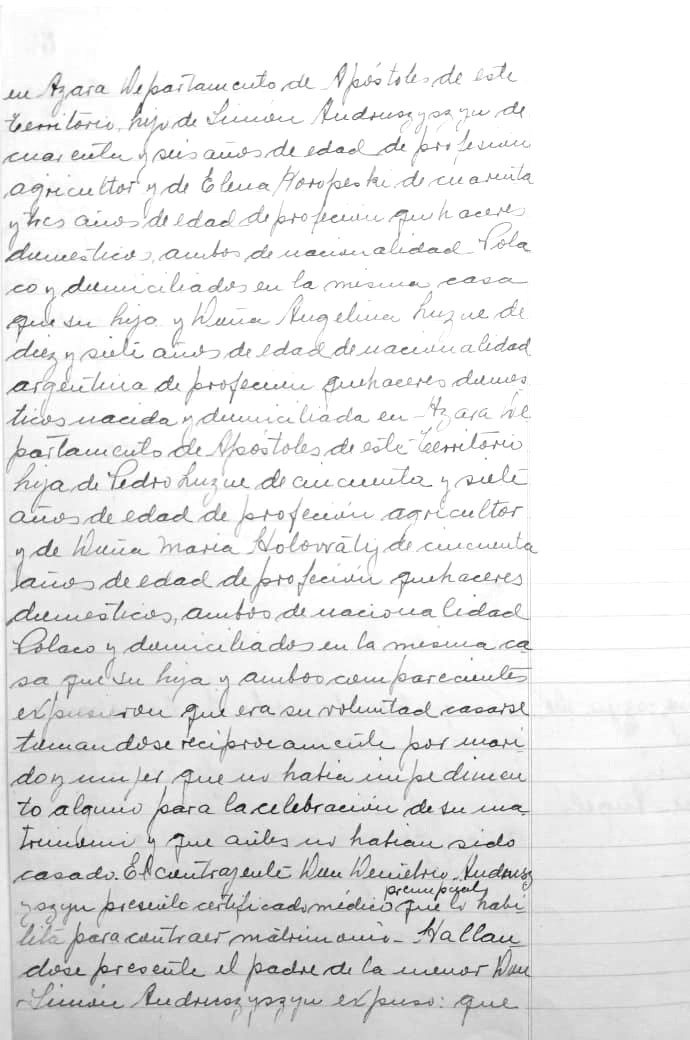 en Azara Departamento de Apóstoles de este
Territorio, hijo de Simón Andruszyszyn de
cuarenta y seis años de edad de profesion
agricultor y de Elena Horopeski de cuarenta
y tres años de edad de profeción quehaceres
domésticos, ambos de nacionalidad Pola
co y domiciliados en la misma casa
que su hijo y Doña Angelina Luzne de
diez y siete años de edad de nacionalidad
argentina de profeción quehaceres domés
ticos nacida y domiciliada en Azara De
partamento de Apóstoles de este Territorio
hija de Pedro Luzne de cincuenta y siete
años de edad de profeción agricultor
y de Doña Maria Holovatij de cincuenta
años de edad de profeción quehaceres
domésticos, ambos de nacionalidad
Polaco y domiciliados en la misma ca
sa que su hija y ambos comparecientes
expusieron que era su voluntad casarse
tomandose reciprocamente por mari
do y mujer que no habia impedimen
to alguno para la celebración de su ma-
trimoni y que antes no habian sido
casado. El contrayente Don Demetrio Andrusz
yszyn presento certificado médico prenupcial que lo habi
lita para contraer matrimonio - Hallan
dose presente el padre de la menor Don
Simón Andruszyszyn expuso: que